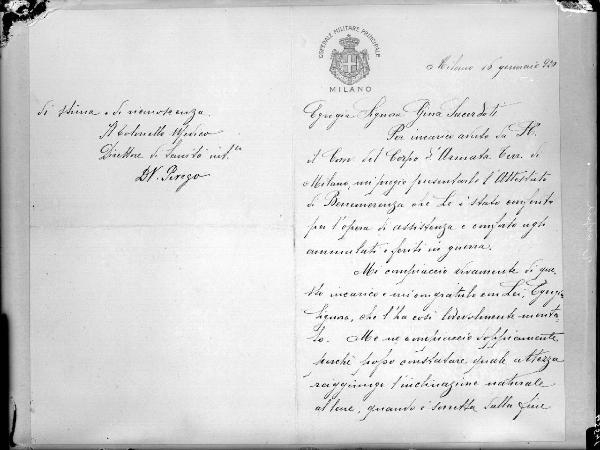 OSPEDALE MILITARE PRINCIPALE
MILANO
Milano 16 gennaio 920
Egregia Signora Gina Sacerdoti
Per incarico avuto da
il Com. del Corpo d'Armata Terr. di
Milano, mi pregio presentarle l'Attestato
di Benemerenza che Le è stato conferito
per l'opera di assistenza e conforto agli
ammalati e feriti in guerra.
Mi compiaccio vivamente di que-
sto incarico e mi congratulo con Lei, Egregia
Signora, che l'ha così lodevolmente merita-
to. Me ne compiaccio doppiamente
perché posso constatare quale altezza
raggiunge l'inclinazione naturale
al bene, quando è sorretta dalla fine
di stima e di riconoscenza.
Il Colonnello Medico
Direttore di Sanità
Dr. Perego